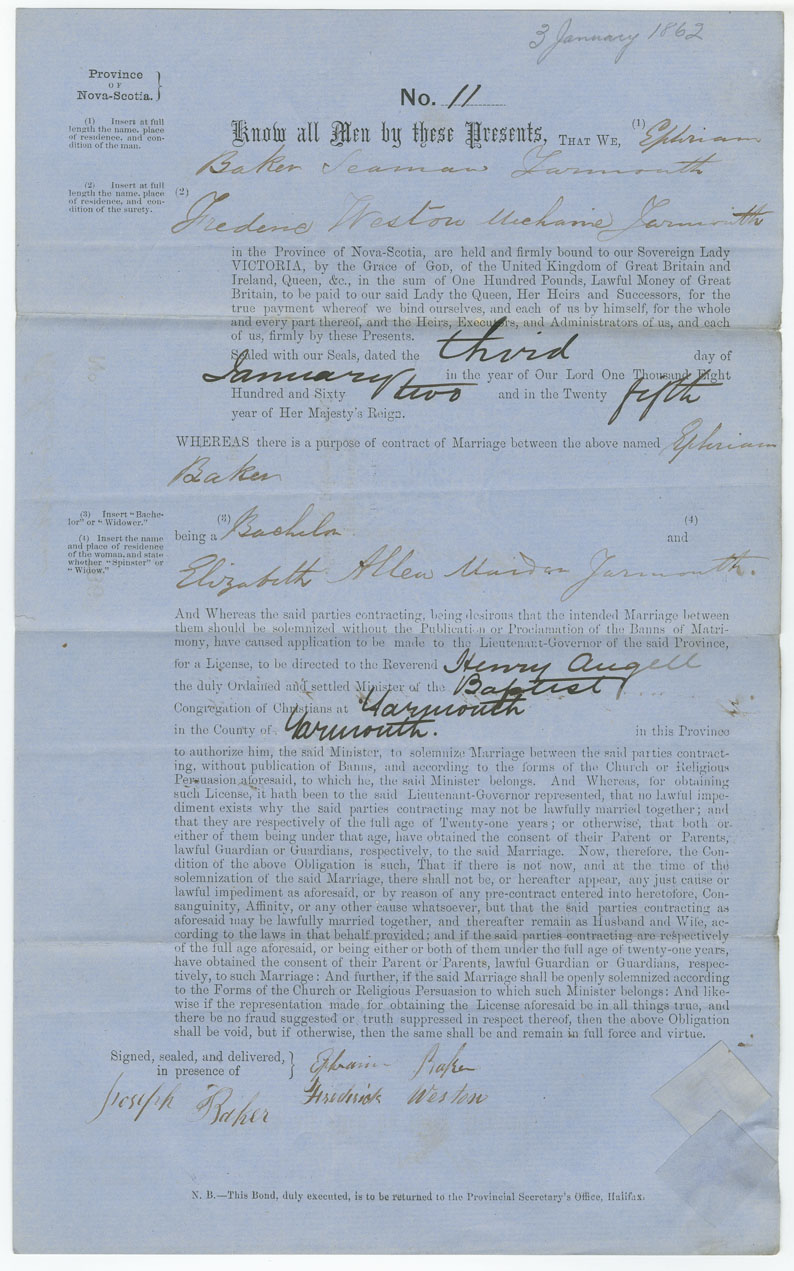 3 January 1862
Province
OF
Nova-Scotia.
No. 11
(1) Insert at full
length the name, place
of residence, and con-
dition of the man.
Know all Men by these Presents, THAT WE, (1) Ephriam
Baker Seaman Yarmouth
(2) Insert at full
length the name, place
of residence, and con-
dition of the surety.
(2)
Frederic Weston Mechanic Yarmouth
in the Province of Nova-Scotia, are held and firmly bound to our Sovereign Lady
VICTORIA, by the Grace of GOD, of the United Kingdom of Great Britain and
Ireland, Queen, &c., in the sum of One Hundred Pounds, Lawful Money of Great
Britain, to be paid to our said Lady the Queen, Her Heirs and Successors, for the
true payment whereof we bind ourselves, and each of us by himself, for the whole
and every part thereof, and the Heirs, Executors, and Administrators of us, and each
of us, firmly by these Presents.
Sealed with our Seals, dated the third day of
January in the year of Our Lord One Thousand Eight
Hundred and Sixty two and in the Twenty fifth
year of Her Majesty's Reign.
WHEREAS there is a purpose of contract of Marriage between the above named Ephriam
Baker
(3) Insert "Bache-
lor" or "Widower."
(4) Insert the name
and place of residence
of the woman, and state
whether "Spinster" or
"Widow."
being a (3) Bachelor and (4)
Elizabeth Allen Maiden Yarmouth.
And Whereas the said parties contracting, being desirous that the intended Marriage between
them should be solemnized without the Publication or Proclamation of the Banns of Matri-
mony, have caused application to be made to the Lieutenant-Governor of the said Province,
for a License, to be directed to the Reverend Henry Angell
the duly Ordained and settled Minister of the Baptist
Congregation of Christians at Yarmouth
in the County of Yarmouth. in this Province
to authorize him, the said Minister, to solemnize Marriage between the said parties contract-
ing, without publication of Banns, and according to the forms of the Church or Religious
Persuasion aforesaid, to which he, the said Minister belongs. And Whereas, for obtaining
such License, it hath been to the said Lieutenant-Governor represented, that no lawful impe-
diment exists why the said parties contracting may not be lawfully married together; and
that they are respectively of the full age of Twenty-one years; or otherwise, that both or
either of them being under that age, have obtained the consent of their Parent or Parents,
lawful Guardian or Guardians, respectively, to the said Marriage. Now, therefore, the Con-
dition of the above Obligation is such, That if there is not now, and at the time of the
solemnization of the said Marriage, there shall not be, or hereafter appear, any just cause or
lawful impediment as aforesaid, or by reason of any pre-contract entered into heretofore, Con-
sanguinity, Affinity, or any other cause whatsoever, but that the said parties contracting as
aforesaid may be lawfully married together, and thereafter remain as Husband and Wife, ac-
cording to the laws in that behalf provided; and if the said parties contracting are respectively
of the full age aforesaid, or being either or both of them under the full age of twenty-one years,
have obtained the consent of their Parent or Parents, lawful Guardian or Guardians, respec-
tively, to such Marriage: And further, if the said Marriage shall be openly solemnized according
to the Forms of the Church or Religious Persuasion to which such Minister belongs: And like-
wise if the representation made for obtaining the License aforesaid be in all things true, and
there be no fraud suggested or truth suppressed in respect thereof, then the above Obligation
shall be void, but if otherwise, then the same shall be and remain in full force and virtue.
Signed, sealed, and delivered,
in presence of
Ephraim Baker
Joseph Baker
Frederick Weston
N. B.—This Bond, duly executed, is to be returned to the Provincial Secretary's Office, Halifax.